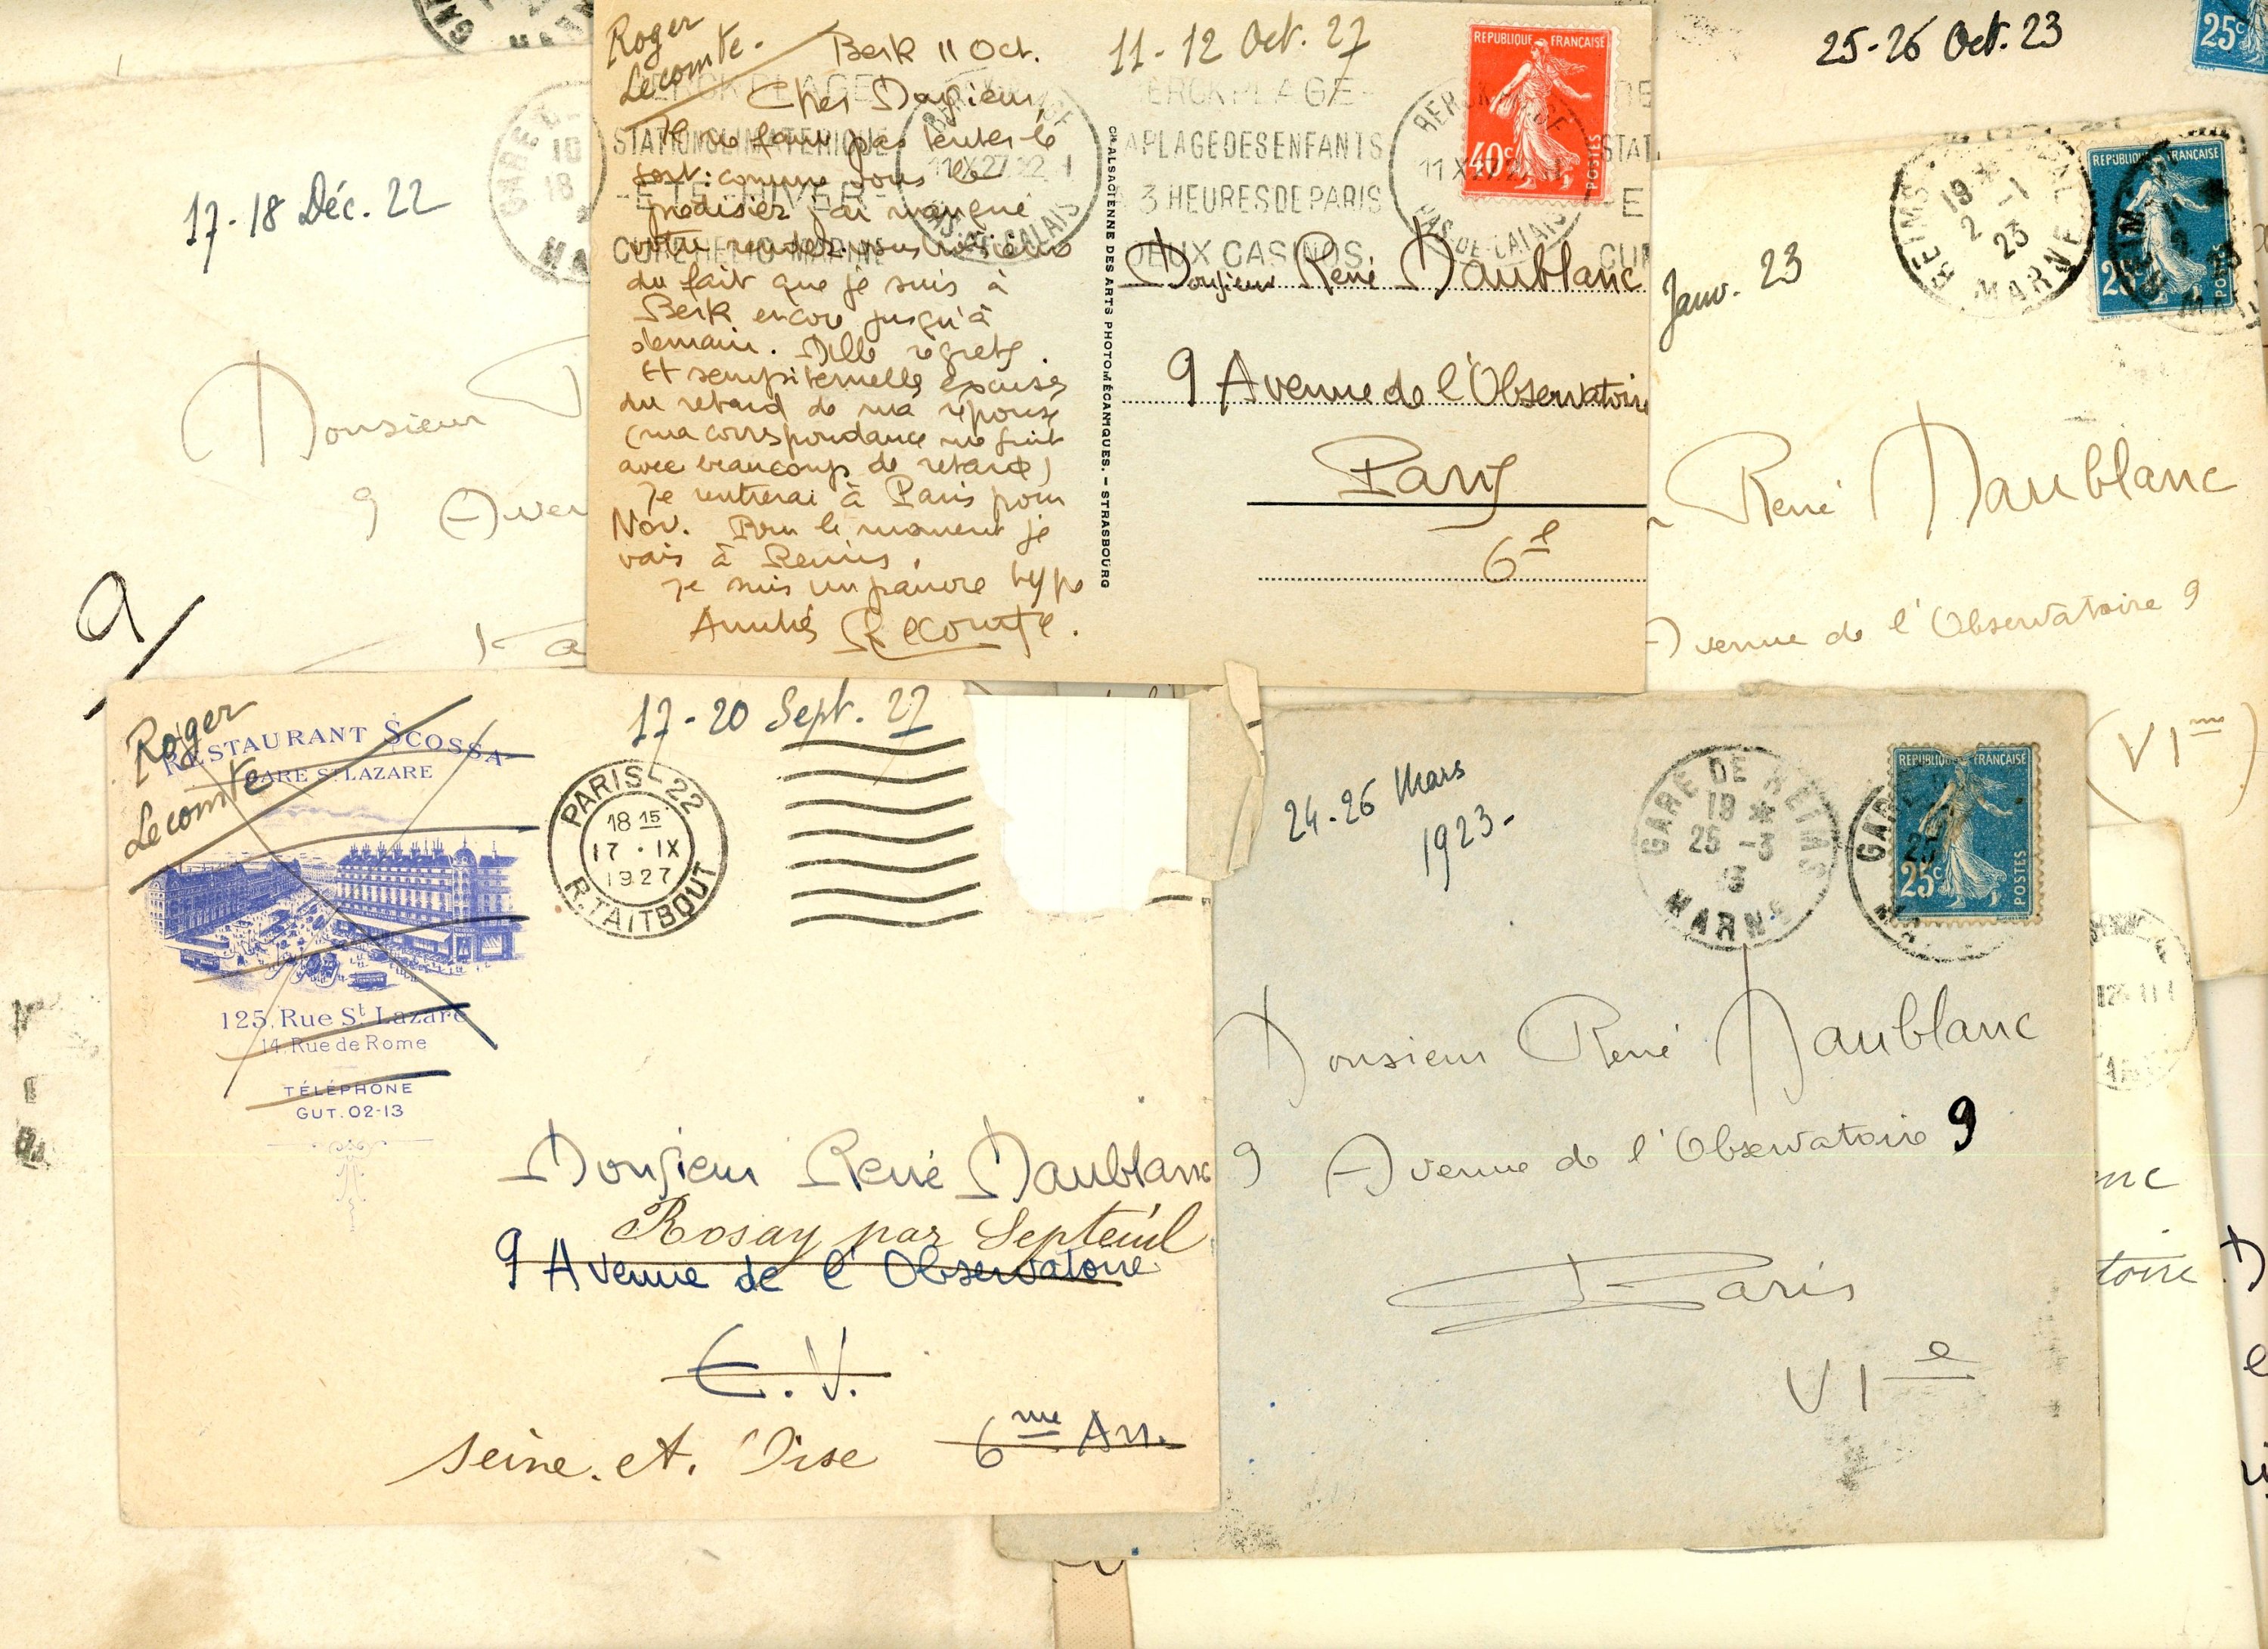 17-18 Déc. 22
Monsieur
9 Aven
9
Roger
Lecomte.
Berk 11 Oct.
Cher Monsieur,
Il ne faut pas tenter le
sort: comme vous le
prédisiez j'ai manqué
votre rendez-vous
du fait que je suis à
Berk encore jusqu'à
demain. Mille regrets
et sempiternelles excuses
du retard de ma réponse
(ma correspondance me suit
avec beaucoup de retard)
Je rentrerai à Paris pour
Nov. Pour le moment je
vais à Reims.
Je suis un pauvre type
Amitiés RLecomte.
STATION CLIMATERIQUE
-ETE-HIVER-
CURE HELIO-MARINE
11 X 27
PAS DE CALAIS
11-12 Oct. 27
BERCK PLAGE
LA PLAGE DES ENFANTS
A 3 HEURES DE PARIS
DEUX CASINOS
PAS DE CALAIS
REPUBLIQUE FRANÇAISE
40c
POSTES
Cie ALSACIENNE DES ARTS PHOTOMÉCANIQUES. — STRASBOURG
Monsieur René Maublanc
9 Avenue de l'Observatoire
Paris
6e
25-26 Oct. 23
25c
Janv. 23
REIMS
19 *
2 -1
23
MARNE
REPUBLIQUE FRANÇAISE
25c
POSTES
René Maublanc
Avenue de l'Observatoire 9
(VIme)
Roger
Lecomte
RESTAURANT SCOSSA
GARE ST LAZARE
125, Rue St Lazare
14, Rue de Rome
TÉLÉPHONE
GUT. 02-13
17-20 Sept. 27
PARIS-22
18 15
17 · IX
1927
R. TAITBOUT
Monsieur René Maublanc
Rosay par Septeuil
9 Avenue de l'Observatoire
E.V.
6me Arr.
Seine. et. Oise
24-26 Mars
1923-
GARE DE REIMS
19 *
25 -3
MARNE
REPUBLIQUE FRANÇAISE
25c
POSTES
Monsieur René Maublanc
9 Avenue de l'Observatoire 9
Paris
VIe
nc
toire